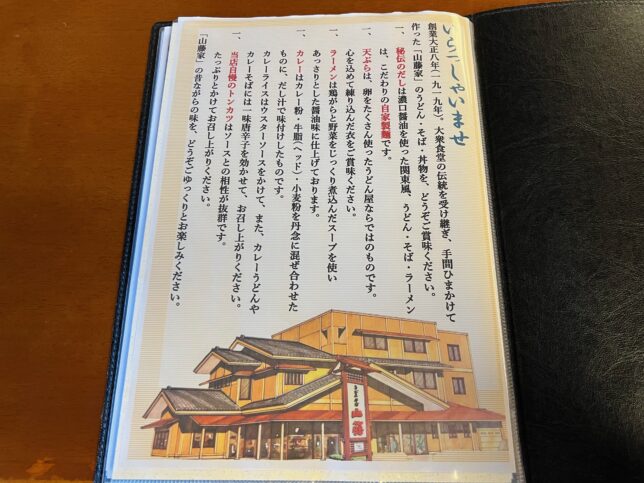 いらっしゃいませ
創業大正八年(一九一九年)。大衆食堂の伝統を受け継ぎ、手間ひまかけて
作った「山藤家」のうどん・そば・丼物を、どうぞご賞味ください。
一、秘伝のだしは濃口醤油を使った関東風、うどん・そば・ラーメン
は、こだわりの自家製麺です。
一、天ぷらは、卵をたくさん使ったうどん屋ならではのものです。
心を込めて練り込んだ衣をご賞味ください。
一、ラーメンは鶏がらと野菜をじっくり煮込んだスープを使い
あっさりとした醤油味に仕上げております。
一、カレーはカレー粉・牛脂(ヘッド)・小麦粉を丹念に混ぜ合わせた
ものに、だし汁で味付けしたものです。
カレーライスはウスターソースをかけて、また、カレーうどんや
カレーそばには一味唐辛子を効かせて、お召し上がりください。
一、当店自慢のトンカツはソースとの相性が抜群です。
たっぷりとかけてお召し上がりください。
「山藤家」の昔ながらの味を、どうぞごゆっくりとお楽しみください。
山藤